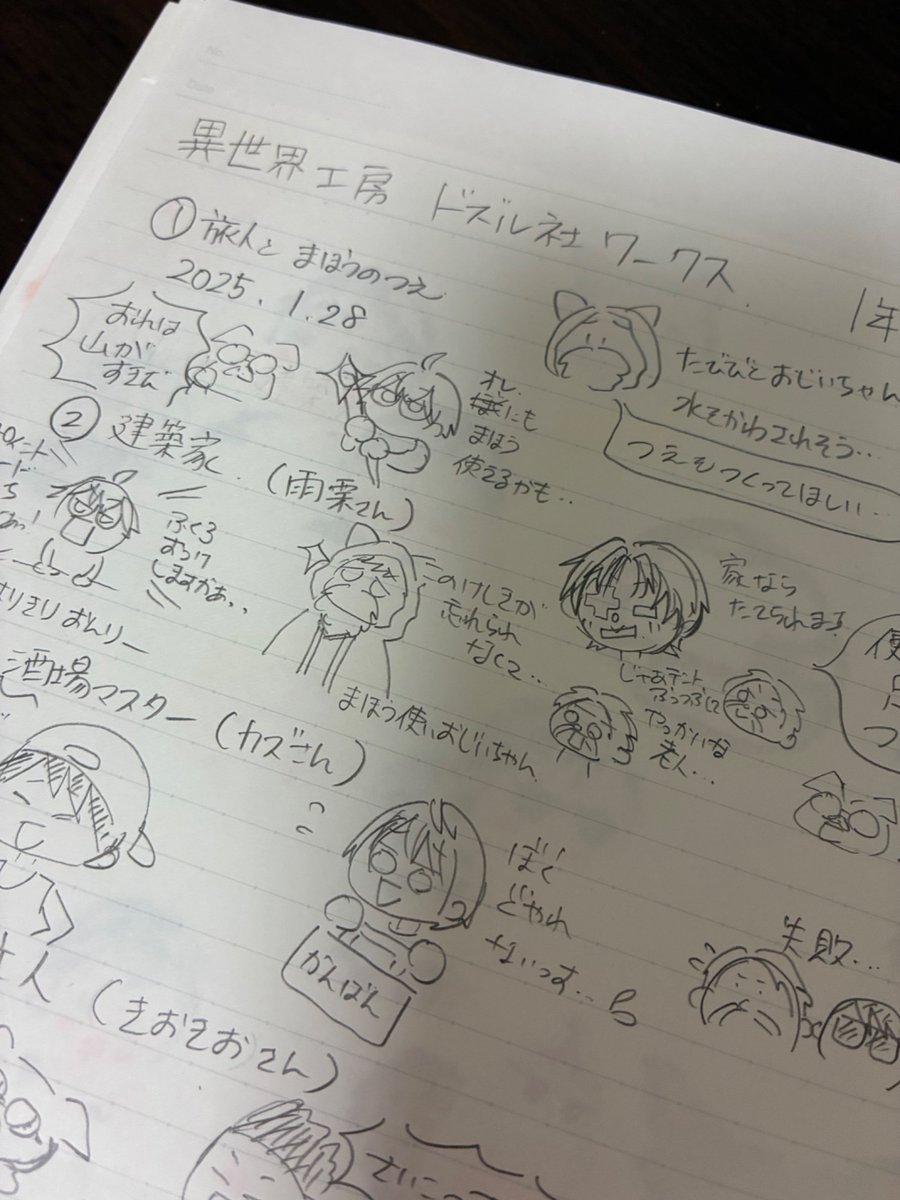 No.
Date
異世界工房 ドズル社ワークス
1年
① 旅人と まほうのつえ
2025.1.28
おれは
山が
すきだ
オレ
にも
まほう
使えるかも..
たびびとおじいちゃん
水そかわされそう...
つえをつくってほしい..
② 建築家
(雨栗さん)
ふくろ
しますかぁ..
おんりー
このけしきが
忘れられ
なくて..
まほう使いおじいちゃん
家なら
たてられます
じゃあテント
やっかいな
老人...
酒場マスター
(カズさん)
かんばん
ぼく
どやれ
ないっす..
失敗...
人 (きおきおさん)
さいこっ